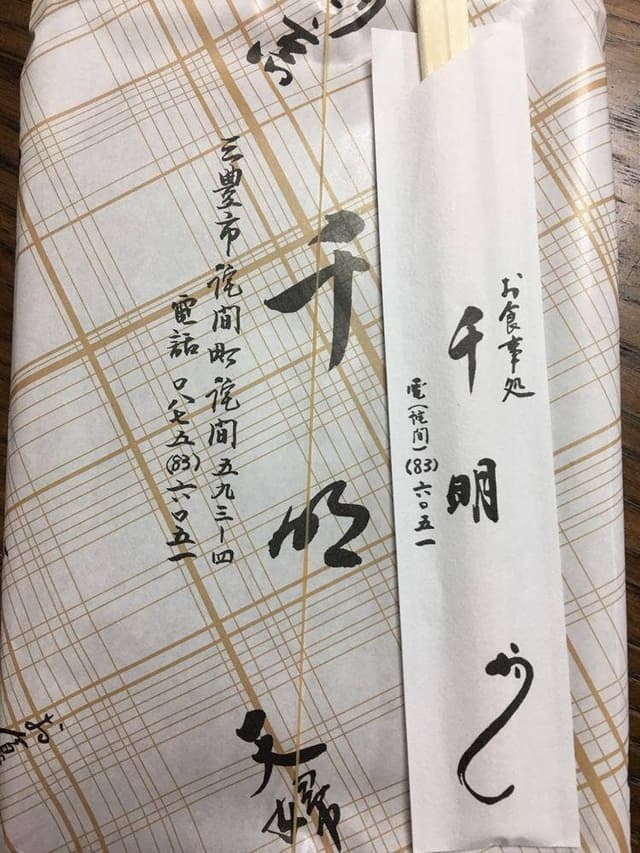 お食事処
千明
電(詫間)(83)六〇五一
千明
三豊市詫間町詫間五九三ー四
電話 〇八七五(83)六〇五一